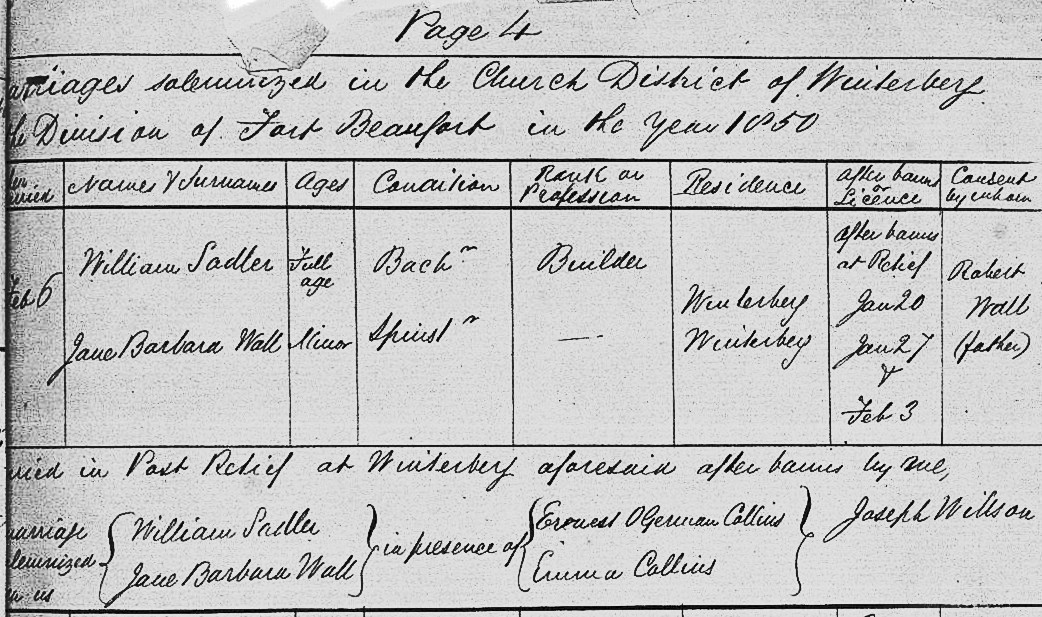 Page 4
arriages solemnized in the Church District of Winterberg
he Division of Fort Beaufort in the Year 1850
Names & Surnames Ages Condition Rank or Profession Residence after banns or Licence Consent by whom
after banns
William Sadler Full age Bachr Builder at Retief
Feb 6 Winterberg Jan 20 Robert Wall
Jane Barbara Wall Minor Spinstr — Winterberg Jan 27 (father)
&
Feb 3
rried in Post Retief at Winterberg aforesaid after banns by me,
marriage William Sadler Ernest OGerman Collins Joseph Willson
lemnized in presence of
n us Jane Barbara Wall Emma Collins